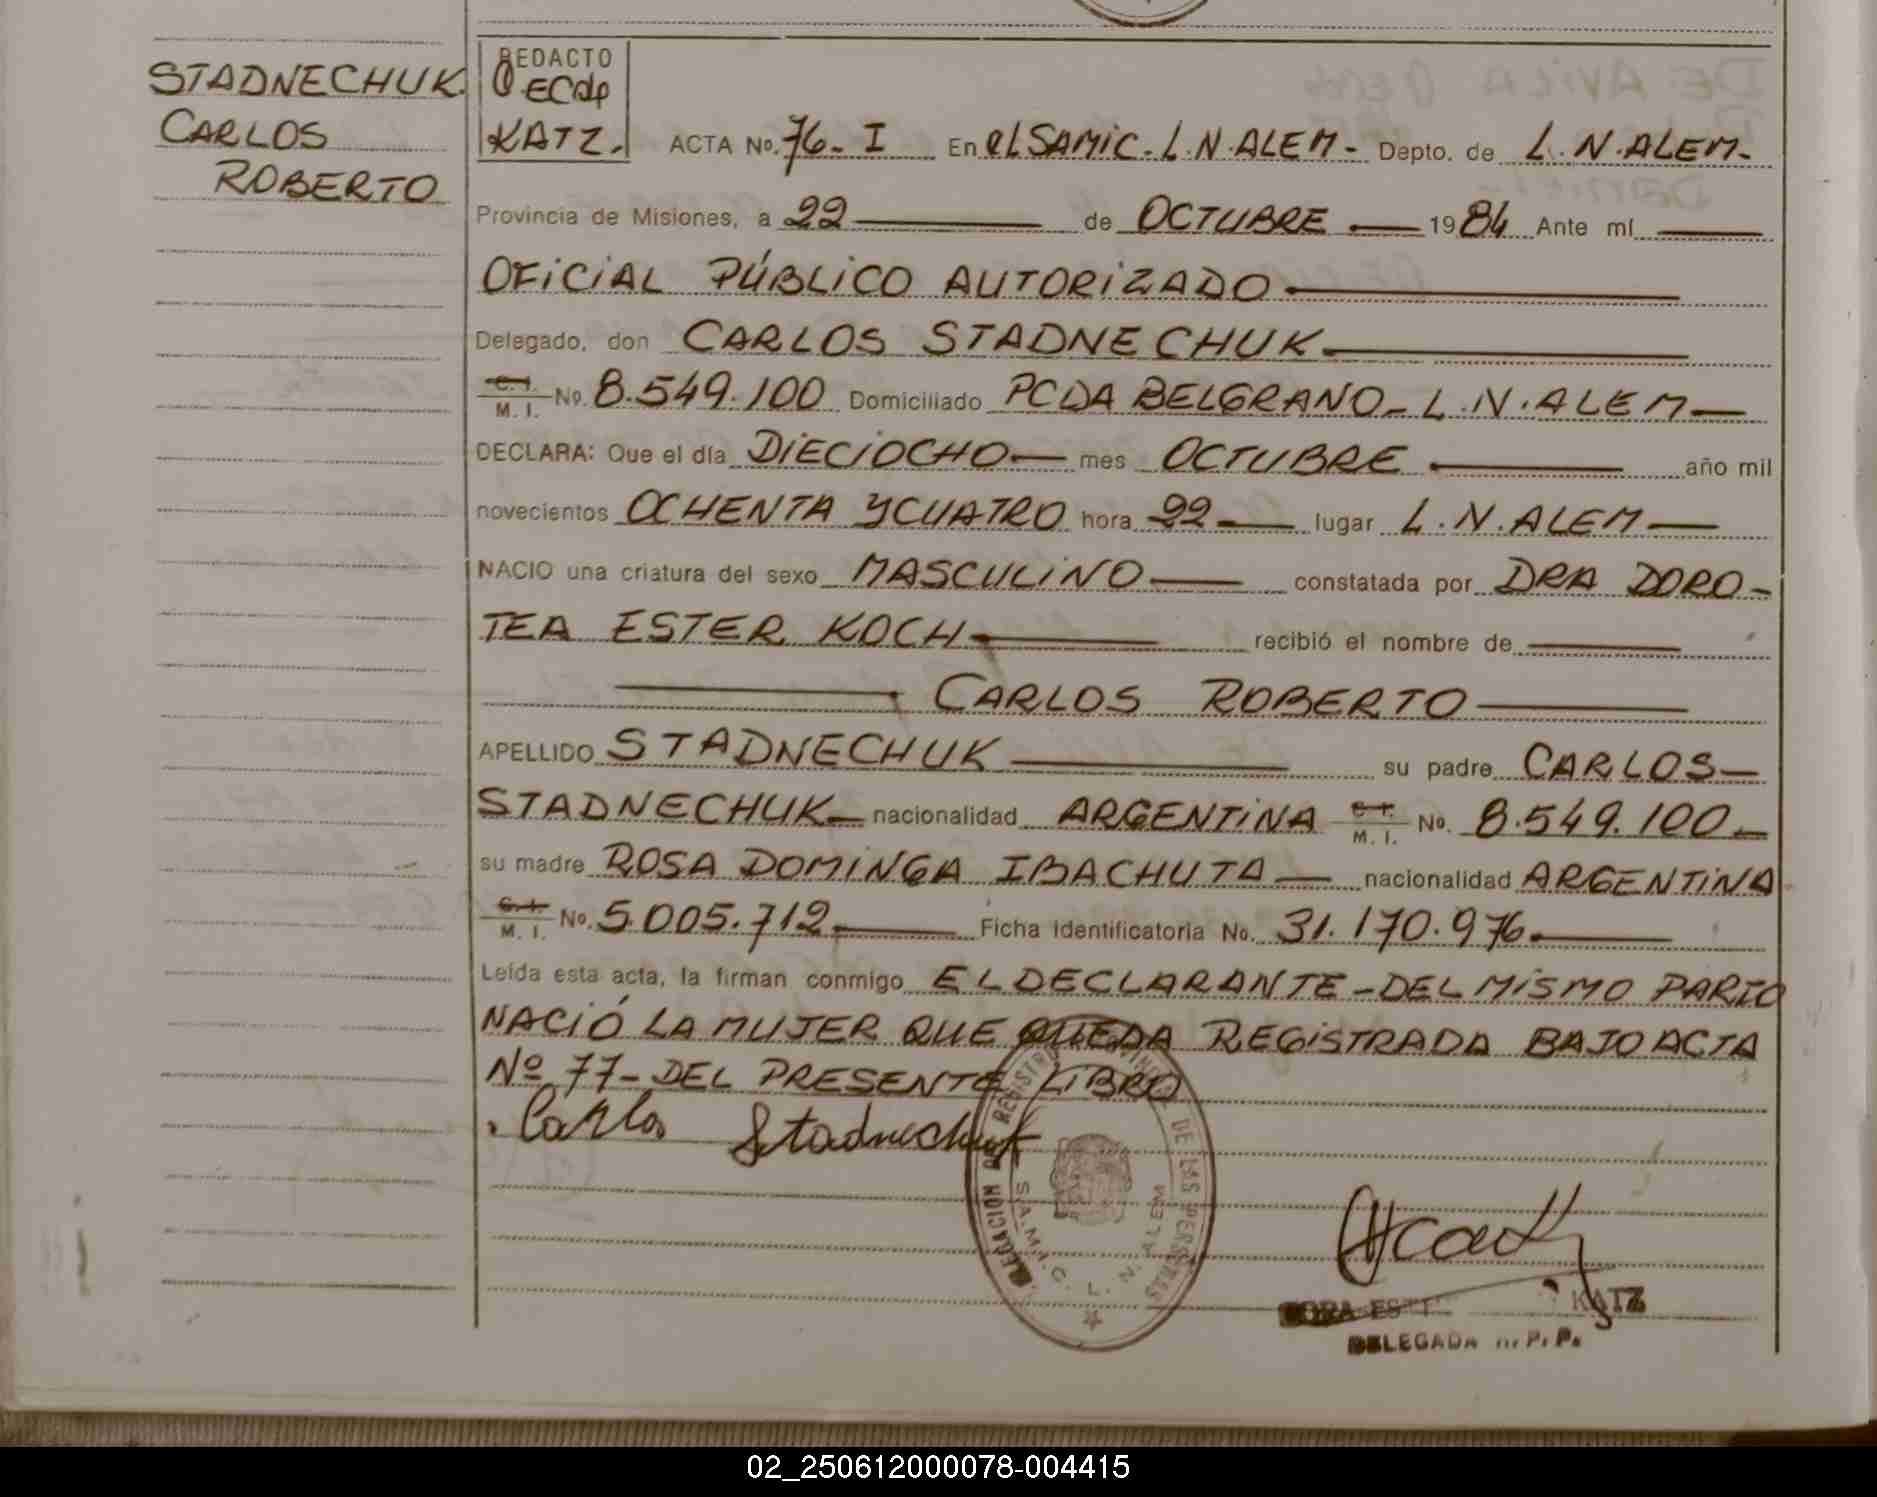 STADNECHUK
CARLOS
ROBERTO
REDACTO
KATZ.
ACTA No. 76- I En el SAMIC. L.N. ALEM- Depto. de L.N. ALEM-
Provincia de Misiones, a 22 de OCTUBRE 1984 Ante mí
OFICIAL PÚBLICO AUTORIZADO
Delegado, don CARLOS STADNECHUK
C. I. M. I. No. 8.549.100 Domiciliado PCDA BELGRANO- L.N. ALEM
DECLARA: Que el día DIECIOCHO mes OCTUBRE año mil
novecientos OCHENTA Y CUATRO hora 22 lugar L.N. ALEM
NACIO una criatura del sexo MASCULINO constatada por DRA DORO-
TEA ESTER KOCH recibió el nombre de
CARLOS ROBERTO
APELLIDO STADNECHUK su padre CARLOS
STADNECHUK nacionalidad ARGENTINA C. I. M. I. No. 8.549.100
su madre ROSA DOMINGA IBACHUTA nacionalidad ARGENTINA
C. I. M. I. No. 5.005.712 Ficha Identificatoria No. 31.170.976
Leída esta acta, la firman conmigo EL DECLARANTE-DEL MISMO PARTO
NACIÓ LA MUJER QUE QUEDA REGISTRADA BAJO ACTA
Nº 77- DEL PRESENTE LIBRO
Carlos Stadnechuk
DELEGACION DEL REGISTRO PROVINCIAL DE LAS PERSONAS
S.A.M.I.C. L. N. ALEM
KATZ
DELEGADA R.P.P.
02_250612000078-004415